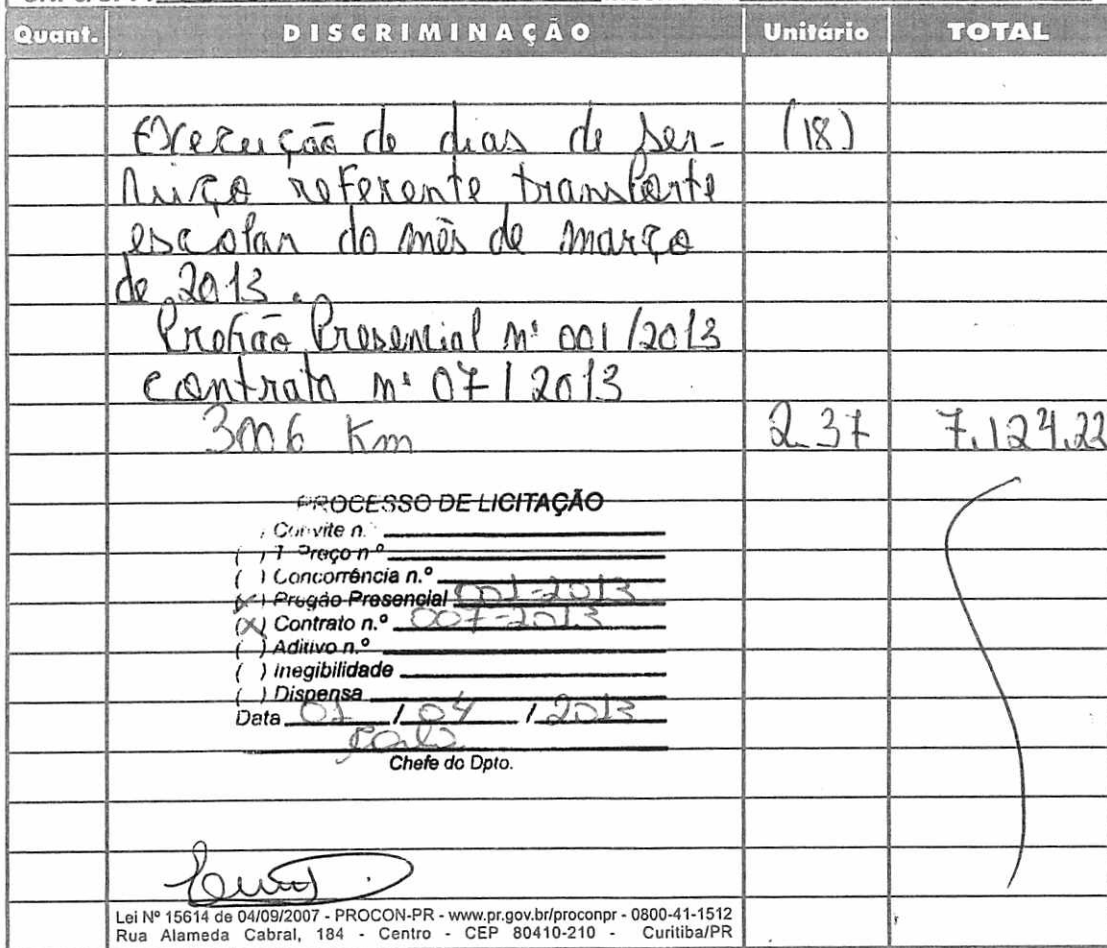 Quant. DISCRIMINAÇÃO Unitário TOTAL
Execução de dias de ser- (18)
viço referente transporte
escolar do mês de março
de 2013.
Pregão Presencial nº 001/2013
contrato nº 07/2013
3006 Km 2.37 7.124,22
PROCESSO DE LICITAÇÃO
Convite n.º
( ) T. Preço n.º
( ) Concorrência n.º
(x) Pregão Presencial 001-2013
(x) Contrato n.º 007-2013
( ) Aditivo n.º
( ) Inegibilidade
( ) Dispensa
Data 01 / 04 / 2013
Chefe do Dpto.
Lei Nº 15614 de 04/09/2007 - PROCON-PR - www.pr.gov.br/proconpr - 0800-41-1512
Rua Alameda Cabral, 184 - Centro - CEP 80410-210 - Curitiba/PR